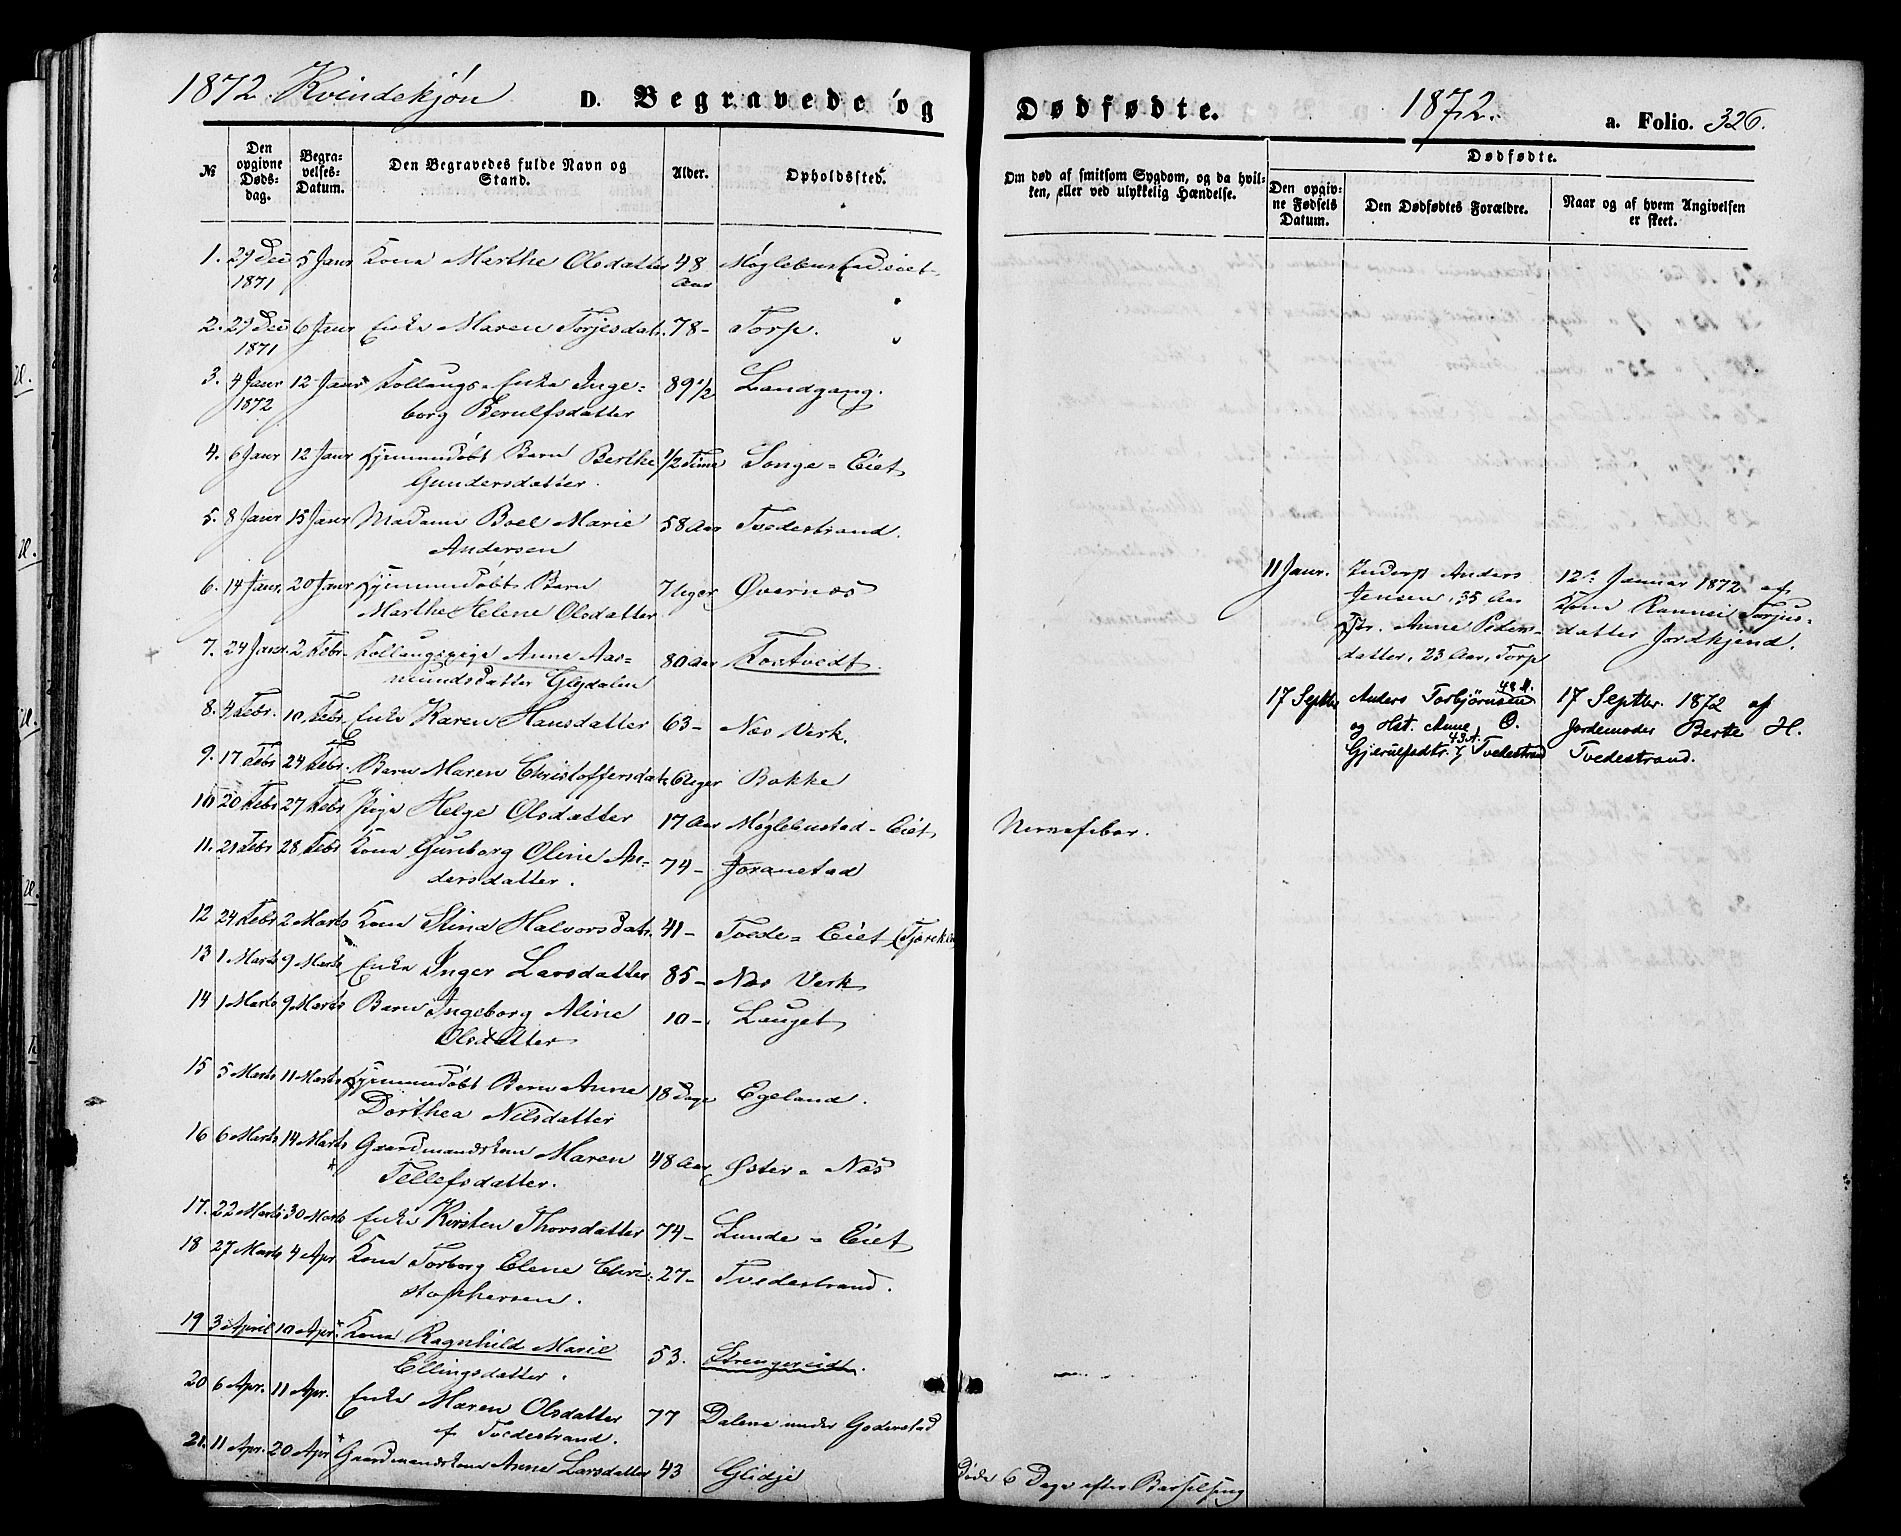 1872. Kvindekjøn D. Begravede og Dødfødte. 1872. a. Folio. 326.
№ Den opgivne Døds-dag. Begra-velses-Datum. Den Begravedes fulde Navn og Stand. Alder. Opholdssted. Om død af smitsom Sygdom, og da hvil-ken, eller ved ulykkelig Hændelse. Dødfødte. Den opgiv-ne Fødsels Datum. Den Dødfødtes Forældre. Naar og af hvem Angivelsen er skeet.
1. 29 Dec 5 Janr Kona Marthe Olsdatter 48 Møglebustadeiet
1871 Aar
2. 29 Dec 6 Janr Enke Maren Torjesdatr. 78 – Torp.
1871
3. 4 Janr 12 Janr Follaugs-Enke Inge= 89 1/2 Landgang.
1872 borg Berulfsdatter
4. 6 Janr 12 Janr Hjemmedøbt Barn Berthe 1/2 Time Songe = Eiet
Gundersdatter.
5. 8 Janr 15 Janr Madame Boel Marie 58 Aar Tvedestrand.
Andersen
6. 14 Janr. 20 Janr Hjemmedøbt Barn 7 Uger Øvernæs
Marthe Helene Olsdatter
7. 24 Janr. 2 Febr. Follaugspige Anne Aas= 80 Aar Fostvedt.
mundsdatter Glydalen
8. 4 Febr. 10 Febr. Enke Karen Hansdatter 63 – Næs Verk.
9. 17 Febr 24 Febr. Barn Maren Christoffersdatr. 6 Uger Bakke
10 20 Febr 27 Febr Pige Helge Olsdatter 17 Aar Møglebustad – Eiet Nervefeber.
11. 21 Febr 28 Febr Kona Gunborg Oline An= 74 – Goranstad
dersdatter.
12 24 Febr 2 Marts Kona Stina Halvorsdatr. 41 – Tvede = Eiet
13 1 Marts 9 Marts Enke Inger Larsdatter 85 – Næs Verk
14 1 Marts 9 Marts Barn Ingeborg Aline 10 – Lauget
Olsdatter
15 5 Marts 11 Marts Hjemmedøbt Barn Anne 18 Dage Egeland.
Dorthea Nilsdatter
16 6 Marts 14 Marts Gaardmandskone Maren 48 Aar Øster = Næs
Tellefsdatter.
17. 22 Marts 30 Marts Enke Kirsten Thorsdatter 74 – Lunde = Eiet
18 27 Marts 4 Apr Kona Torborg Elene Chri= 27 – Tvedestrand.
stophersen.
19 3 April 10 Apr. Kona Ragnhild Marie 53. Strengereidt.
Ellingsdatter.
20 6 Apr. 11 Apr. Enke Maren Olsdatter 77 Dalene under Goderstad
af Tvedestrand.
21. 11 Apr. 20 Apr Gaardmandskone Anne Larsdatter 43 Glidje Døde 6 Dage efter Barselseng
11 Janr. Inderst Anders 12te Januar 1872 af
Jensen, 35 Aar Kone Rannei Torjus=
Anne Peders- datter Jordkjend.
datter, 23 Aar, Torp
17 Septbr Anders Torbjørnsen 48 A. 17 Septbr. 1872 af
og Hst. Anne O. Jordemoder Berte H.
Gjerulfsdtr. 43 A. Tvedestrand Tvedestrand.